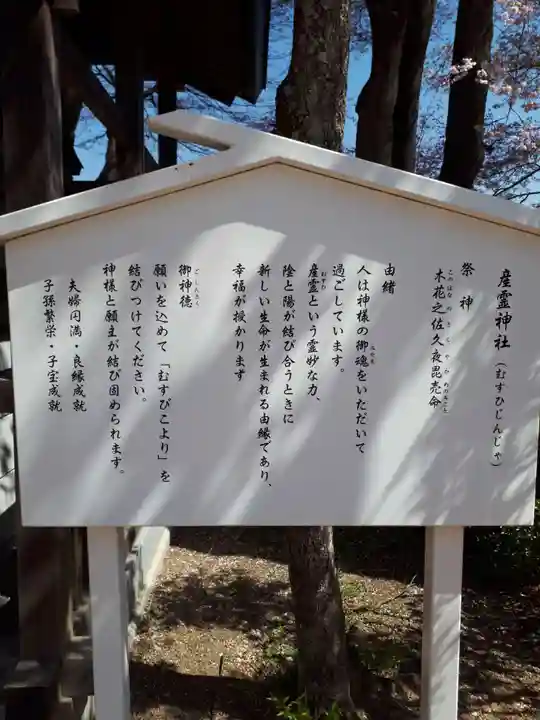 産霊神社(むすひじんじゃ)
祭神
木花之佐久夜毘売命
このはなのさくやひめのみこと
由緒
人は神様の御魂をいただいて
みたま
過ごしています。
産霊という霊妙な力、
むすひ
陰と陽が結び合うときに
新しい生命が生まれる由縁であり、
幸福が授かります
御神徳
ごしんとく
願いを込めて「むすびこより」を
結びつけてください。
神様と願主が結び固められます。
夫婦円満・良縁成就
子孫繁栄・子宝成就